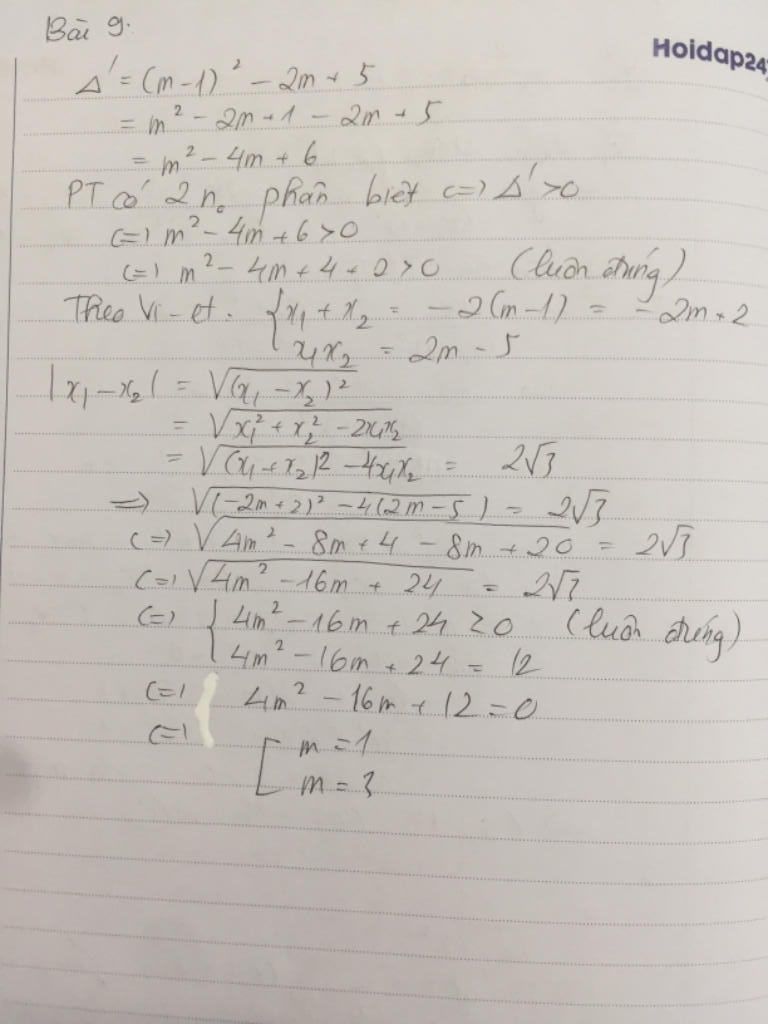 Bài 9.
Hoidap247
Δ' = (m-1)² - 2m + 5
= m² - 2m + 1 - 2m + 5
= m² - 4m + 6
PT có 2 n₀ phân biệt <=> Δ' > 0
<=> m² - 4m + 6 > 0
<=> m² - 4m + 4 + 2 > 0 (luôn đúng)
Theo Vi-et. { x₁ + x₂ = -2(m-1) = -2m + 2
x₁x₂ = 2m - 5
|x₁ - x₂| = √(x₁ - x₂)²
= √x₁² + x₂² - 2x₁x₂
= √(x₁ + x₂)² - 4x₁x₂ = 2√3
=> √(-2m + 2)² - 4(2m - 5) = 2√3
<=> √4m² - 8m + 4 - 8m + 20 = 2√3
<=> √4m² - 16m + 24 = 2√3
<=> { 4m² - 16m + 24 ≥ 0 (luôn đúng)
4m² - 16m + 24 = 12
<=> 4m² - 16m + 12 = 0
<=> [ m = 1
m = 3